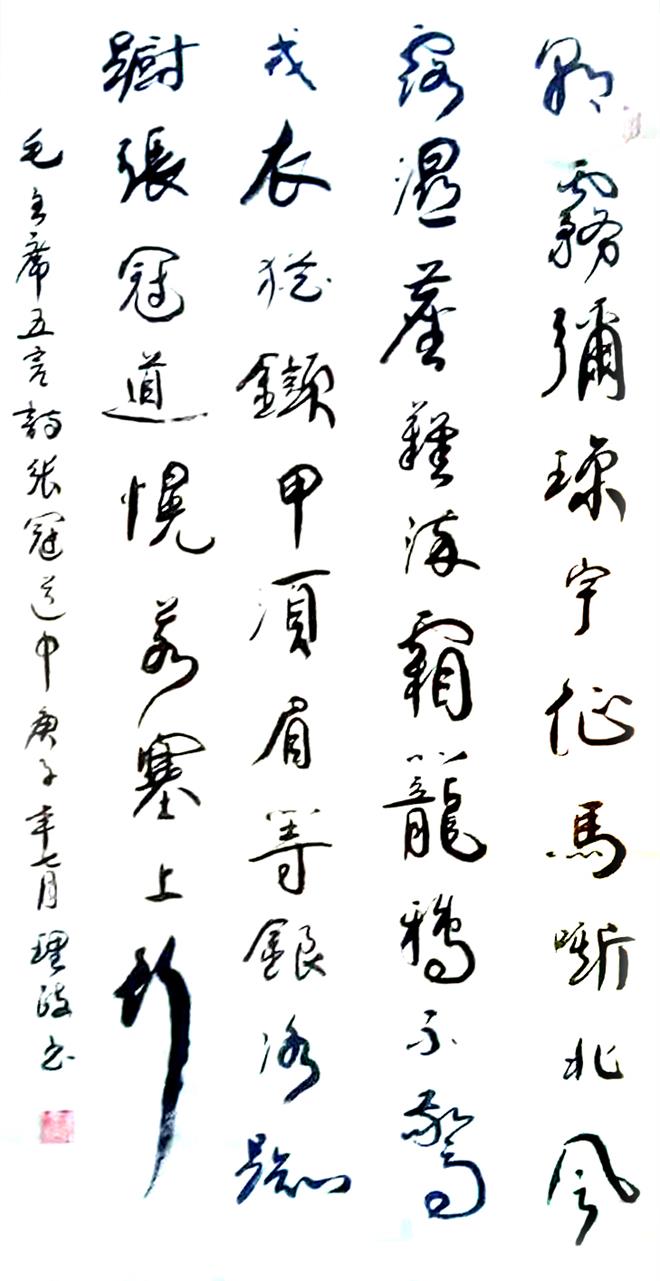 朝霧彌琼宇征馬嘶北風
露濕塵難染霜籠鴉不驚
戎衣猶鐵甲須眉等銀冰踟
躕張冠道愰若塞上行
毛主席五言詩張冠道中庚子年七月理书